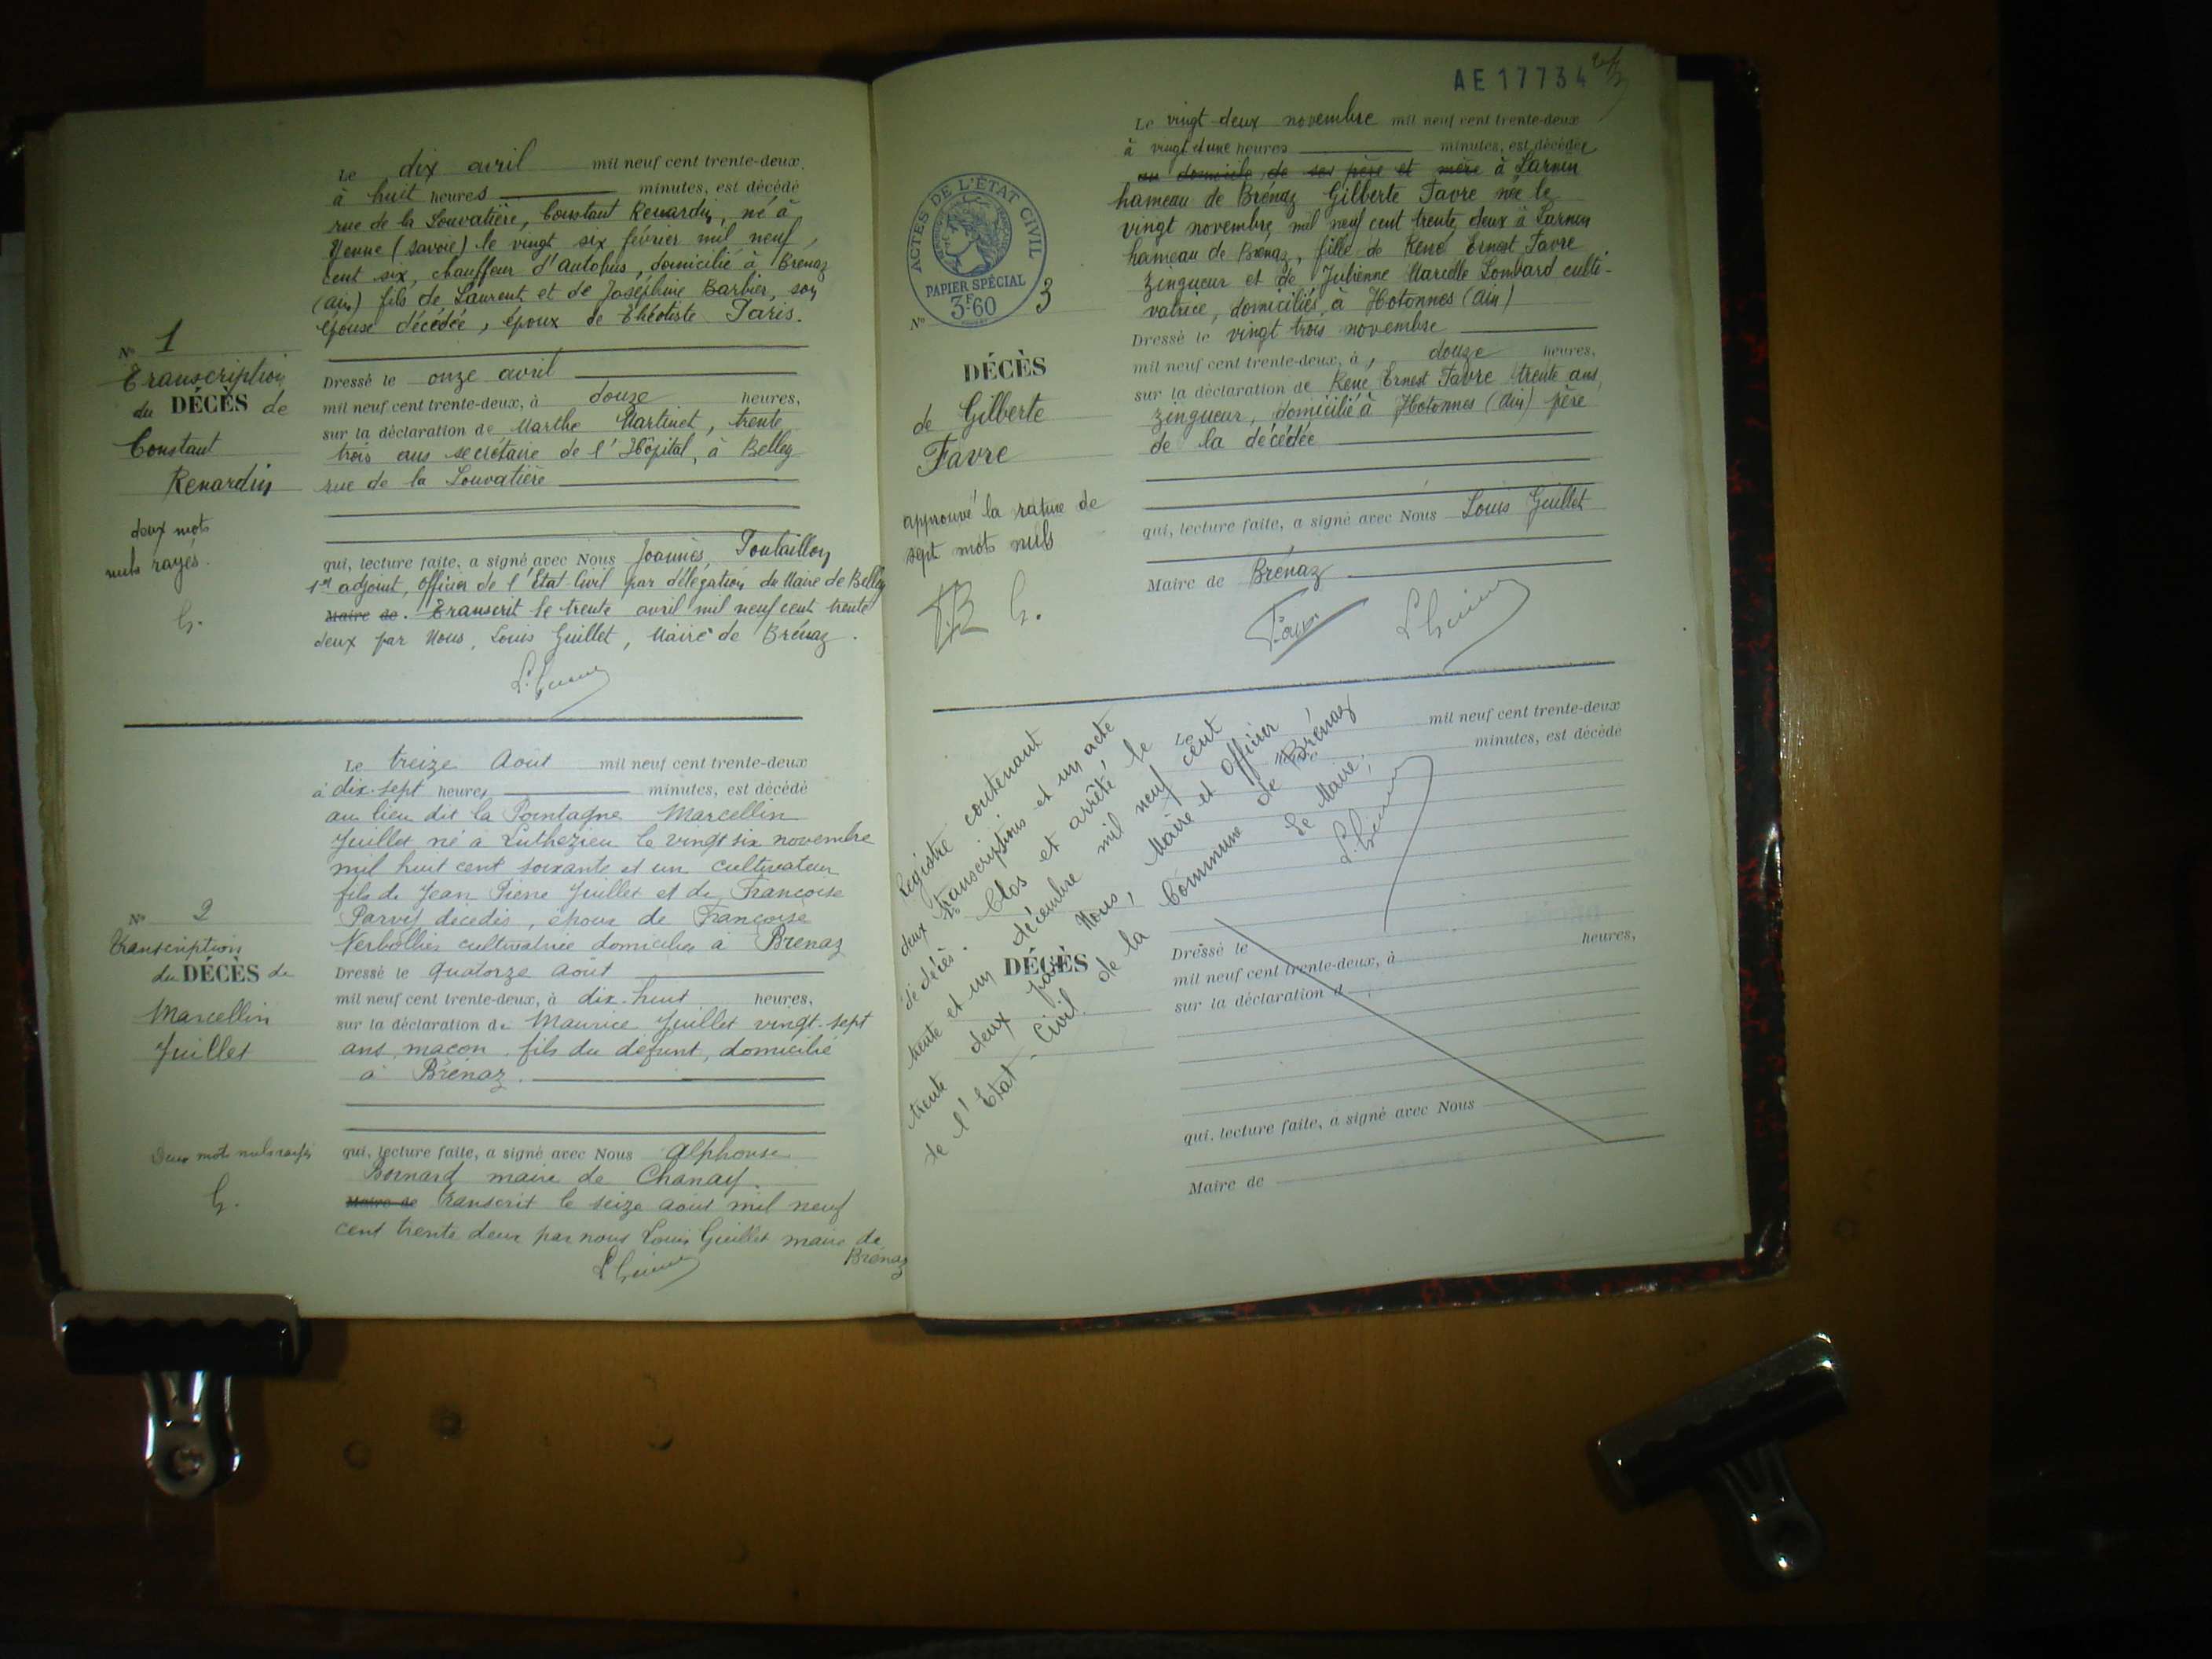 Le dix avril mil neuf cent trente-deux
à huit heures minutes, est décédé
rue de la Louvatière, Constant Renardin, né à
Yenne (Savoie) le vingt six février mil neuf
cent six, chauffeur d'autobus, domicilié à Brenaz
(Ain) fils de Laurent et de Joséphine Barbier, son
épouse décédée, époux de Théotiste Paris.
N° 1
Transcription
du DÉCÈS de
Constant
Renardin
deux mots
nuls rayés.
G.
Dressé le onze avril
mil neuf cent trente-deux, à douze heures,
sur la déclaration de Marthe Martinet, trente
trois ans secrétaire de l'Hôpital, à Belley
rue de la Louvatière
qui, lecture faite, a signé avec Nous Joannès
1er adjoint, Officier de l'Etat Civil par délégation du Maire de Belley
Maire de. Transcrit le trente avril mil neuf cent trente
deux par Nous, Louis Guillet, Maire de Brénaz.
Le treize Août mil neuf cent trente-deux
à dix-sept heures minutes, est décédé
au lieu dit la Marcellin
Juillet né à Luthézieu le vingt six novembre
mil huit cent soixante et un cultivateur
fils de Jean Pierre Juillet et de Françoise
décédés, époux de Françoise
cultivatrice domiciliés à Brenaz
N° 2
Transcription
du DÉCÈS de
Marcellin
Juillet
Deux mots nuls rayés
G.
Dressé le quatorze août
mil neuf cent trente-deux, à dix-huit heures,
sur la déclaration de Maurice Juillet vingt-sept
ans, maçon, fils du défunt, domicilié
à Brénaz.
qui, lecture faite, a signé avec Nous Alphonse
Bornard maire de Chanay.
Maire de Transcrit le seize août mil neuf
cent trente deux par nous Louis Guillet maire de
Brénaz
AE 17734
Le vingt-deux novembre mil neuf cent trente-deux
à vingt et une heures minutes, est décédée
au domicile de ses père et mère à Larnin
hameau de Brénaz Gilberte Favre née le
vingt novembre mil neuf cent trente deux à Larnin
hameau de Brenaz, fille de René Ernest Favre
zingueur et de Julienne Marcelle Lombard culti-
vatrice, domiciliés à Hotonnes (Ain)
ACTES DE L'ÉTAT CIVIL
PAPIER SPÉCIAL
3F60
N° 3
DÉCÈS
de Gilberte
Favre
approuvé la rature de
sept mots nuls
G.
Dressé le vingt trois novembre
mil neuf cent trente-deux, à douze heures,
sur la déclaration de René Ernest Favre trente ans,
zingueur, domicilié à Hotonnes (Ain) père
de la décédée
qui, lecture faite, a signé avec Nous Louis Guillet
Maire de Brénaz
Registre contenant
deux transcriptions et un acte
de décès. Clos et arrêté, le
trente et un décembre mil neuf cent
trente deux par Nous, Maire et Officier
de l'Etat-Civil de la Commune de Brénaz
Le Maire,
Le mil neuf cent trente-deux
heure minutes, est décédé
DÉCÈS
Dressé le
mil neuf cent trente-deux, à heures,
sur la déclaration d
qui, lecture faite, a signé avec Nous
Maire de